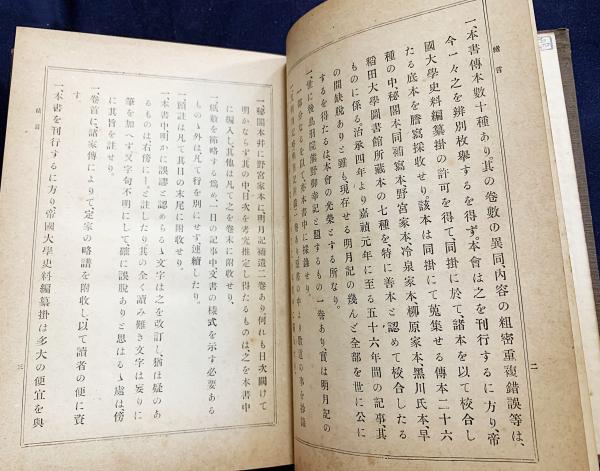 緒言
一、本書傳本數十種あり、其の卷數の異同內容の粗密重複錯誤等は、
今一々之を辨別枚擧するを得ず、本會は之を刊行するに方り、帝
國大學史料編纂掛の許可を得て、同掛に於て、諸本を以て校合し
たる底本を謄寫採收せり。該本は同掛にて蒐集せる傳本二十六
種の中秘閣本、同補寫本、野宮家本、冷泉家本、柳原家本、黑川氏本、早
稻田大學圖書館所藏本の七種を、特に善本と認めて校合したる
ものに係る。治承四年より嘉禎元年に至る五十六年間の記事、其
の間缺脫ありと雖も、現存せる明月記の幾んど全部を世に公に
するを得たるは、本會の光榮とする所なり。
一、世に後鳥羽院熊野御幸記と題するもの一卷あり、實は明月記の
一部分なるを以て、亦本書中に採錄せり。
二
一、秘閣本幷に野宮家本に、明月記補遺二卷あり、何れも日次闕けて
明かならず、其の中、日次を考究推定し得たるものは之を本書中
に編入し、其他は凡て之を卷末に附收せり、
一、紙數を節略する爲め、一日の記事中文書の樣式を示す必要ある
ものゝ外は、凡て行を別にせず連續したり。
一、頭註は凡て其日の末尾に附收せり
一、本書中明かに誤謬と認めらるゝ文字は之を改訂し、猶は疑のあ
るものは右傍に(一)と註したり、其の全く讀み難き文字は妄りに
筆を加へず、又字句不明にして、確に誤脫ありと思はるゝ處は、傍
に其旨を註せり、
一、卷首に諸家傳によりて、定家の略譜を附收し、以て讀者の便に資
す
一、本書を刊行するに方り、帝國大學史料編纂掛は多大の便宜を與
緒言
三